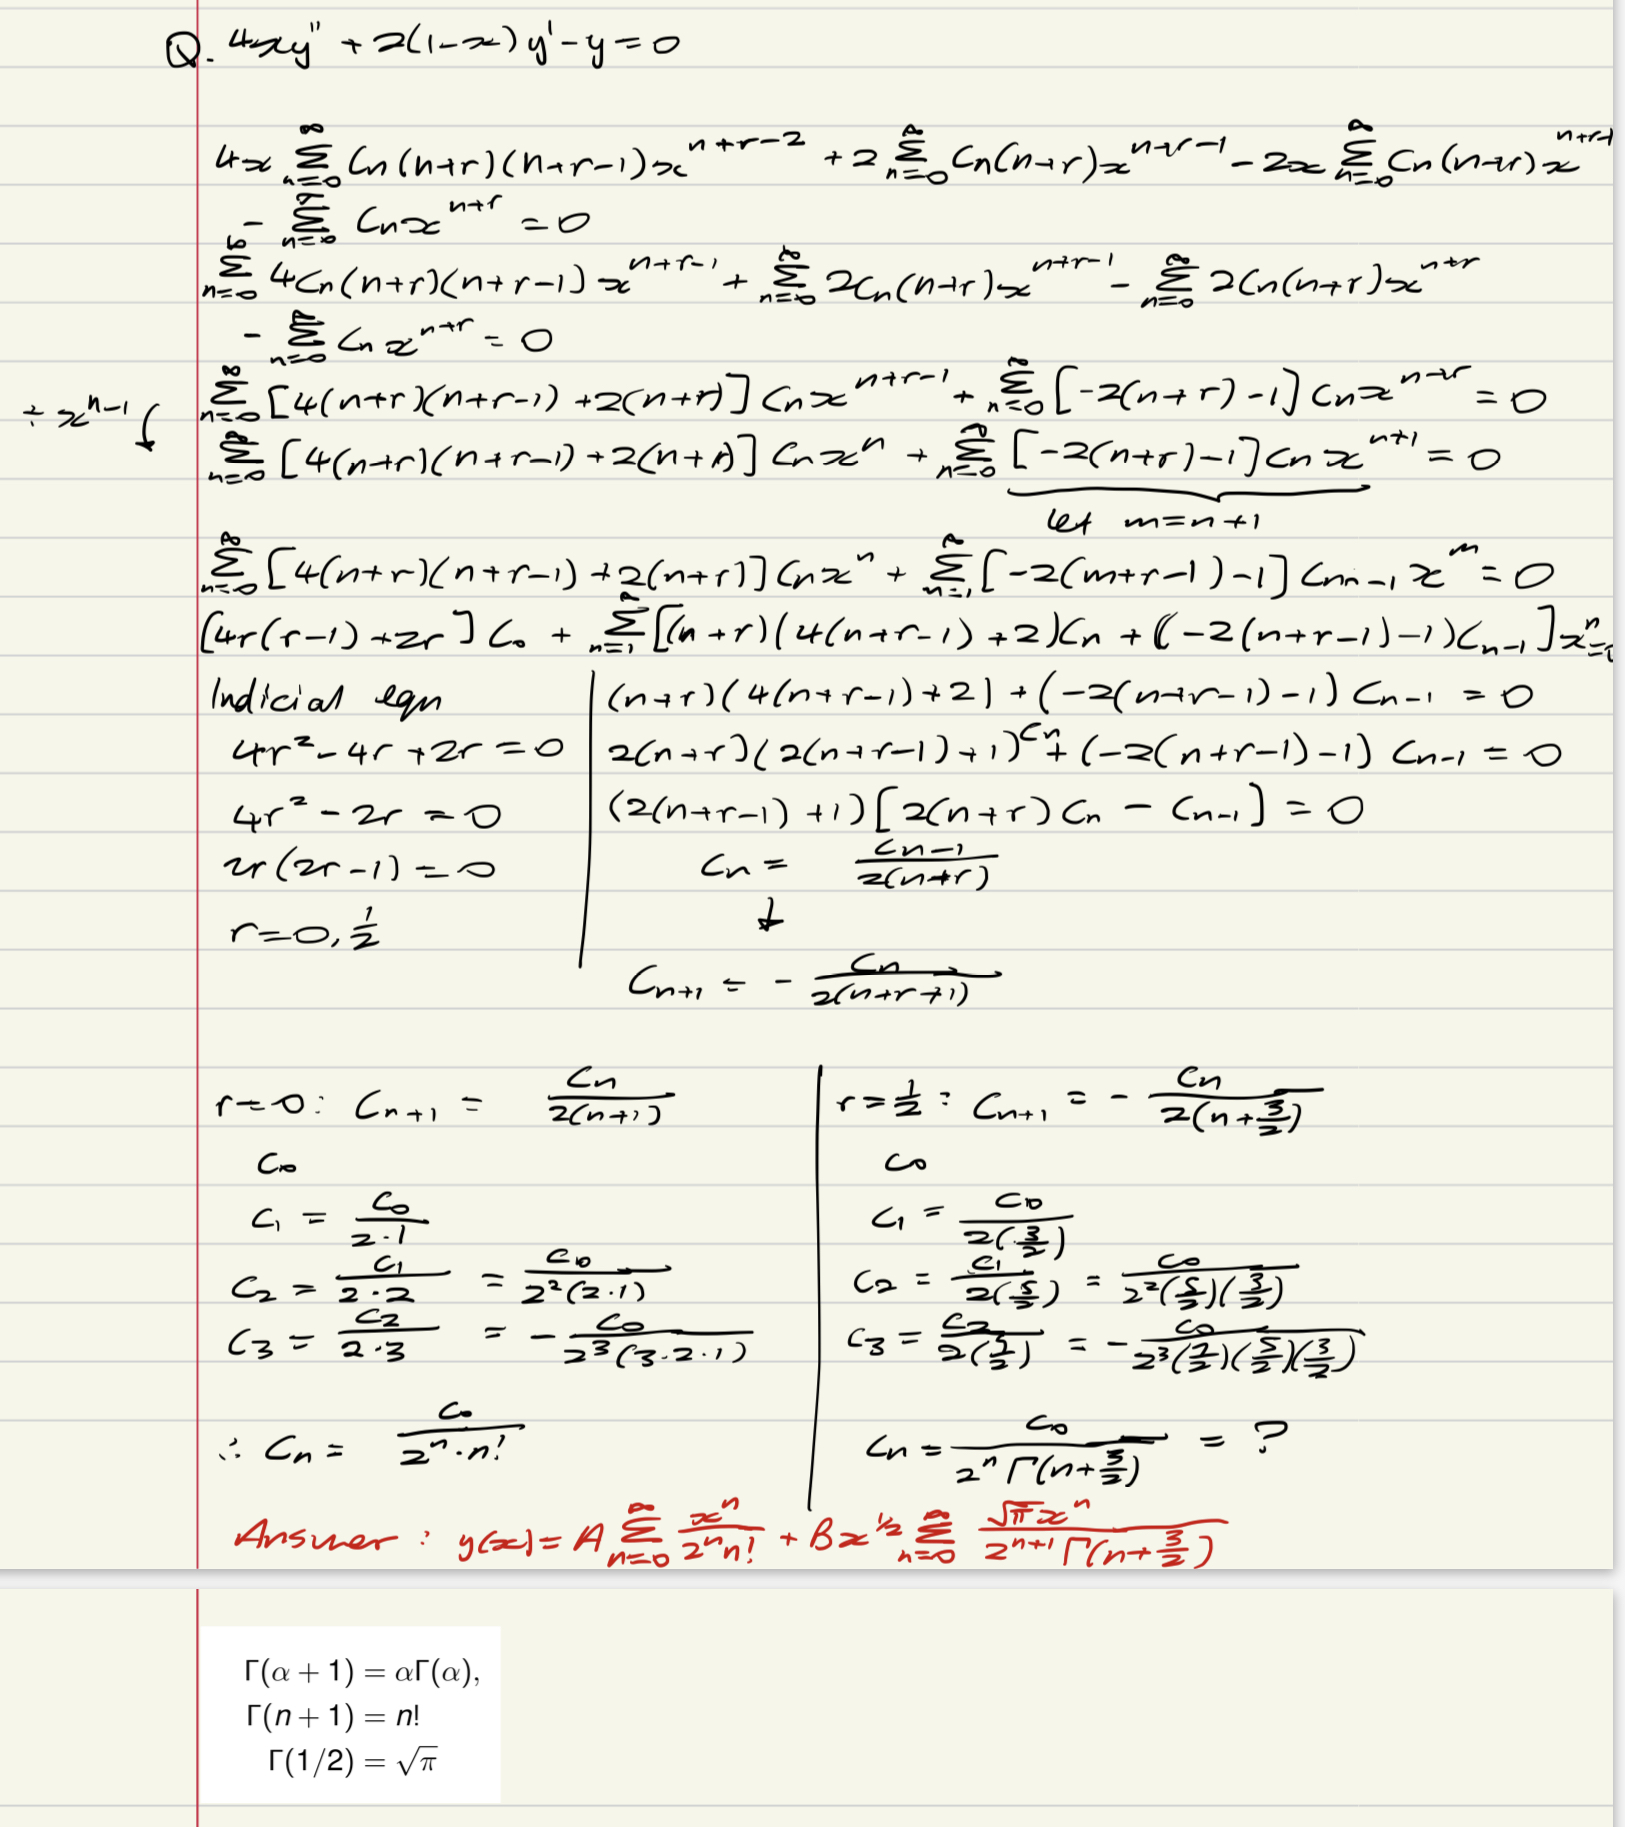 Q. 4xy'' + 2(1-x)y' - y = 0
4x ∑_{n=0}^{∞} Cn(n+r)(n+r-1)x^{n+r-2} + 2 ∑_{n=0}^{∞} Cn(n+r)x^{n+r-1} - 2x ∑_{n=0}^{∞} Cn(n+r)x^{n+r-1}
- ∑_{n=0}^{∞} Cn x^{n+r} = 0
∑_{n=0}^{∞} 4Cn(n+r)(n+r-1)x^{n+r-1} + ∑_{n=0}^{∞} 2Cn(n+r)x^{n+r-1} - ∑_{n=0}^{∞} 2Cn(n+r)x^{n+r}
- ∑_{n=0}^{∞} Cn x^{n+r} = 0
∑_{n=0}^{∞} [4(n+r)(n+r-1)+2(n+r)] Cn x^{n+r-1} + ∑_{n=0}^{∞} [-2(n+r)-1] Cn x^{n+r} = 0
÷ x^{n-1}
∑_{n=0}^{∞} [4(n+r)(n+r-1)+2(n+r)] Cn x^n + ∑_{n=0}^{∞} [-2(n+r)-1] Cn x^{n+1} = 0
let m=n+1
∑_{n=0}^{∞} [4(n+r)(n+r-1)+2(n+r)] Cn x^n + ∑_{m=1}^{∞} [-2(m+r-1)-1] C_{m-1} x^m = 0
[4r(r-1)+2r] C0 + ∑_{n=1}^{∞} [(n+r)(4(n+r-1)+2)Cn + (-2(n+r-1)-1)C_{n-1}] x^n = 0
Indicial eqn
4r² - 4r + 2r = 0
4r² - 2r = 0
2r(2r-1) = 0
r = 0, 1/2
(n+r)(4(n+r-1)+2) + (-2(n+r-1)-1) C_{n-1} = 0
2(n+r)(2(n+r-1)+1)Cn + (-2(n+r-1)-1) C_{n-1} = 0
(2(n+r-1)+1)[2(n+r)Cn - C_{n-1}] = 0
Cn = C_{n-1} / 2(n+r)
↓
C_{n+1} = - Cn / 2(n+r+1)
r=0: C_{n+1} = Cn / 2(n+1)
C0
C1 = C0 / 2·1
C2 = C1 / 2·2 = C0 / 2²(2·1)
C3 = C2 / 2·3 = - C0 / 2³(3·2·1)
∴ Cn = C0 / 2^n · n!
r=1/2: C_{n+1} = - Cn / 2(n+3/2)
C0
C1 = C0 / 2(3/2)
C2 = C1 / 2(5/2) = C0 / 2²(5/2)(3/2)
C3 = C2 / 2(7/2) = - C0 / 2³(7/2)(5/2)(3/2)
Cn = C0 / 2^n Γ(n+3/2) = ?
Answer: y(x) = A ∑_{n=0}^{∞} x^n / 2^n n! + B x^{1/2} ∑_{n=0}^{∞} √π x^n / 2^{n+1} Γ(n+3/2)
Γ(α + 1) = αΓ(α),
Γ(n + 1) = n!
Γ(1/2) = √π